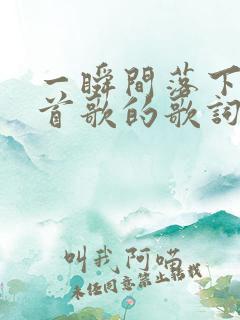 一瞬間落下
首歌的歌詞
叫我阿喵
未经同意禁止转载